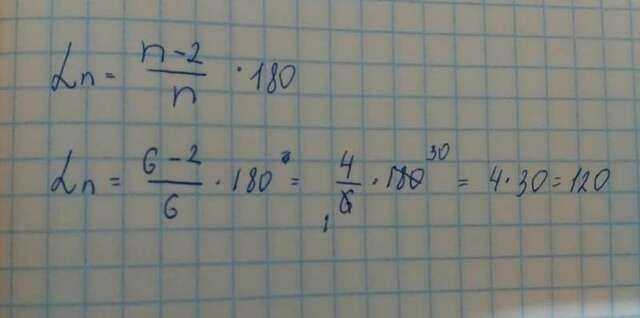 αn = (n-2)/n · 180
αn = (6-2)/6 · 180° = 4/6 1 · 180 30 = 4·30 = 120